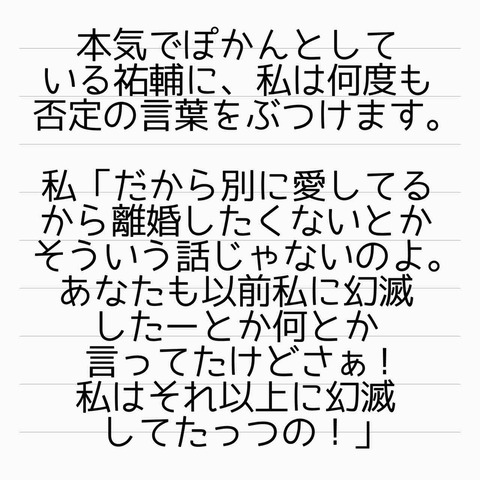 本気でぽかんとして
いる祐輔に、私は何度も
否定の言葉をぶつけます。
私「だから別に愛してる
から離婚したくないとか
そういう話じゃないのよ。
あなたも以前私に幻滅
したーとか何とか
言ってたけどさぁ！
私はそれ以上に幻滅
してたっつの！」